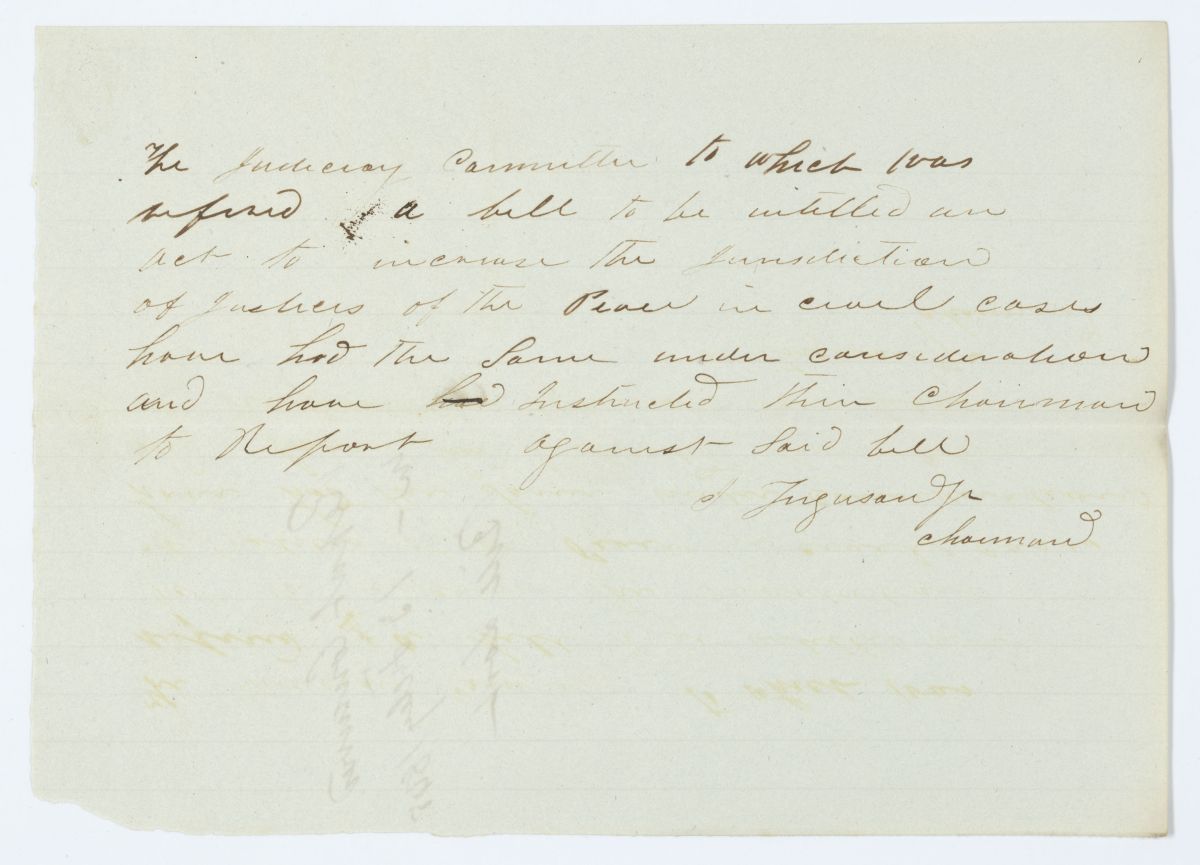 The Judiciary Committee to which was
refered a bill to be intitled an
act to increase the Jurisdiction
of Justices of the Peace in civil cases
have had the Same under consideration
and have had Instructed their Chairman
to Report against Said bill
Ferguson Jr
chairman